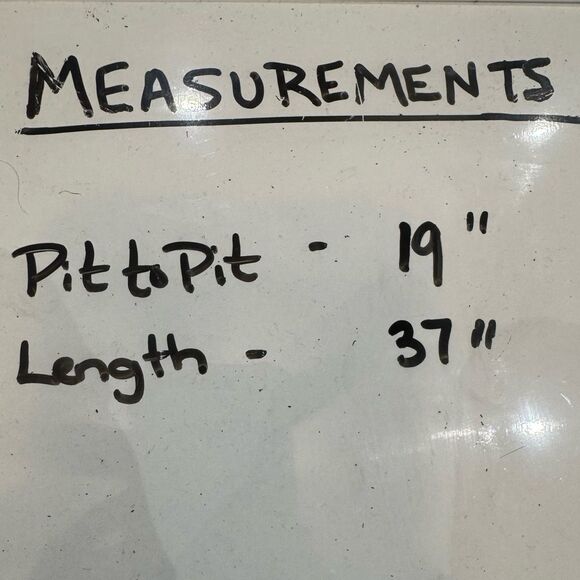 MEASUREMENTS
Pit to Pit - 19"
Length - 37"